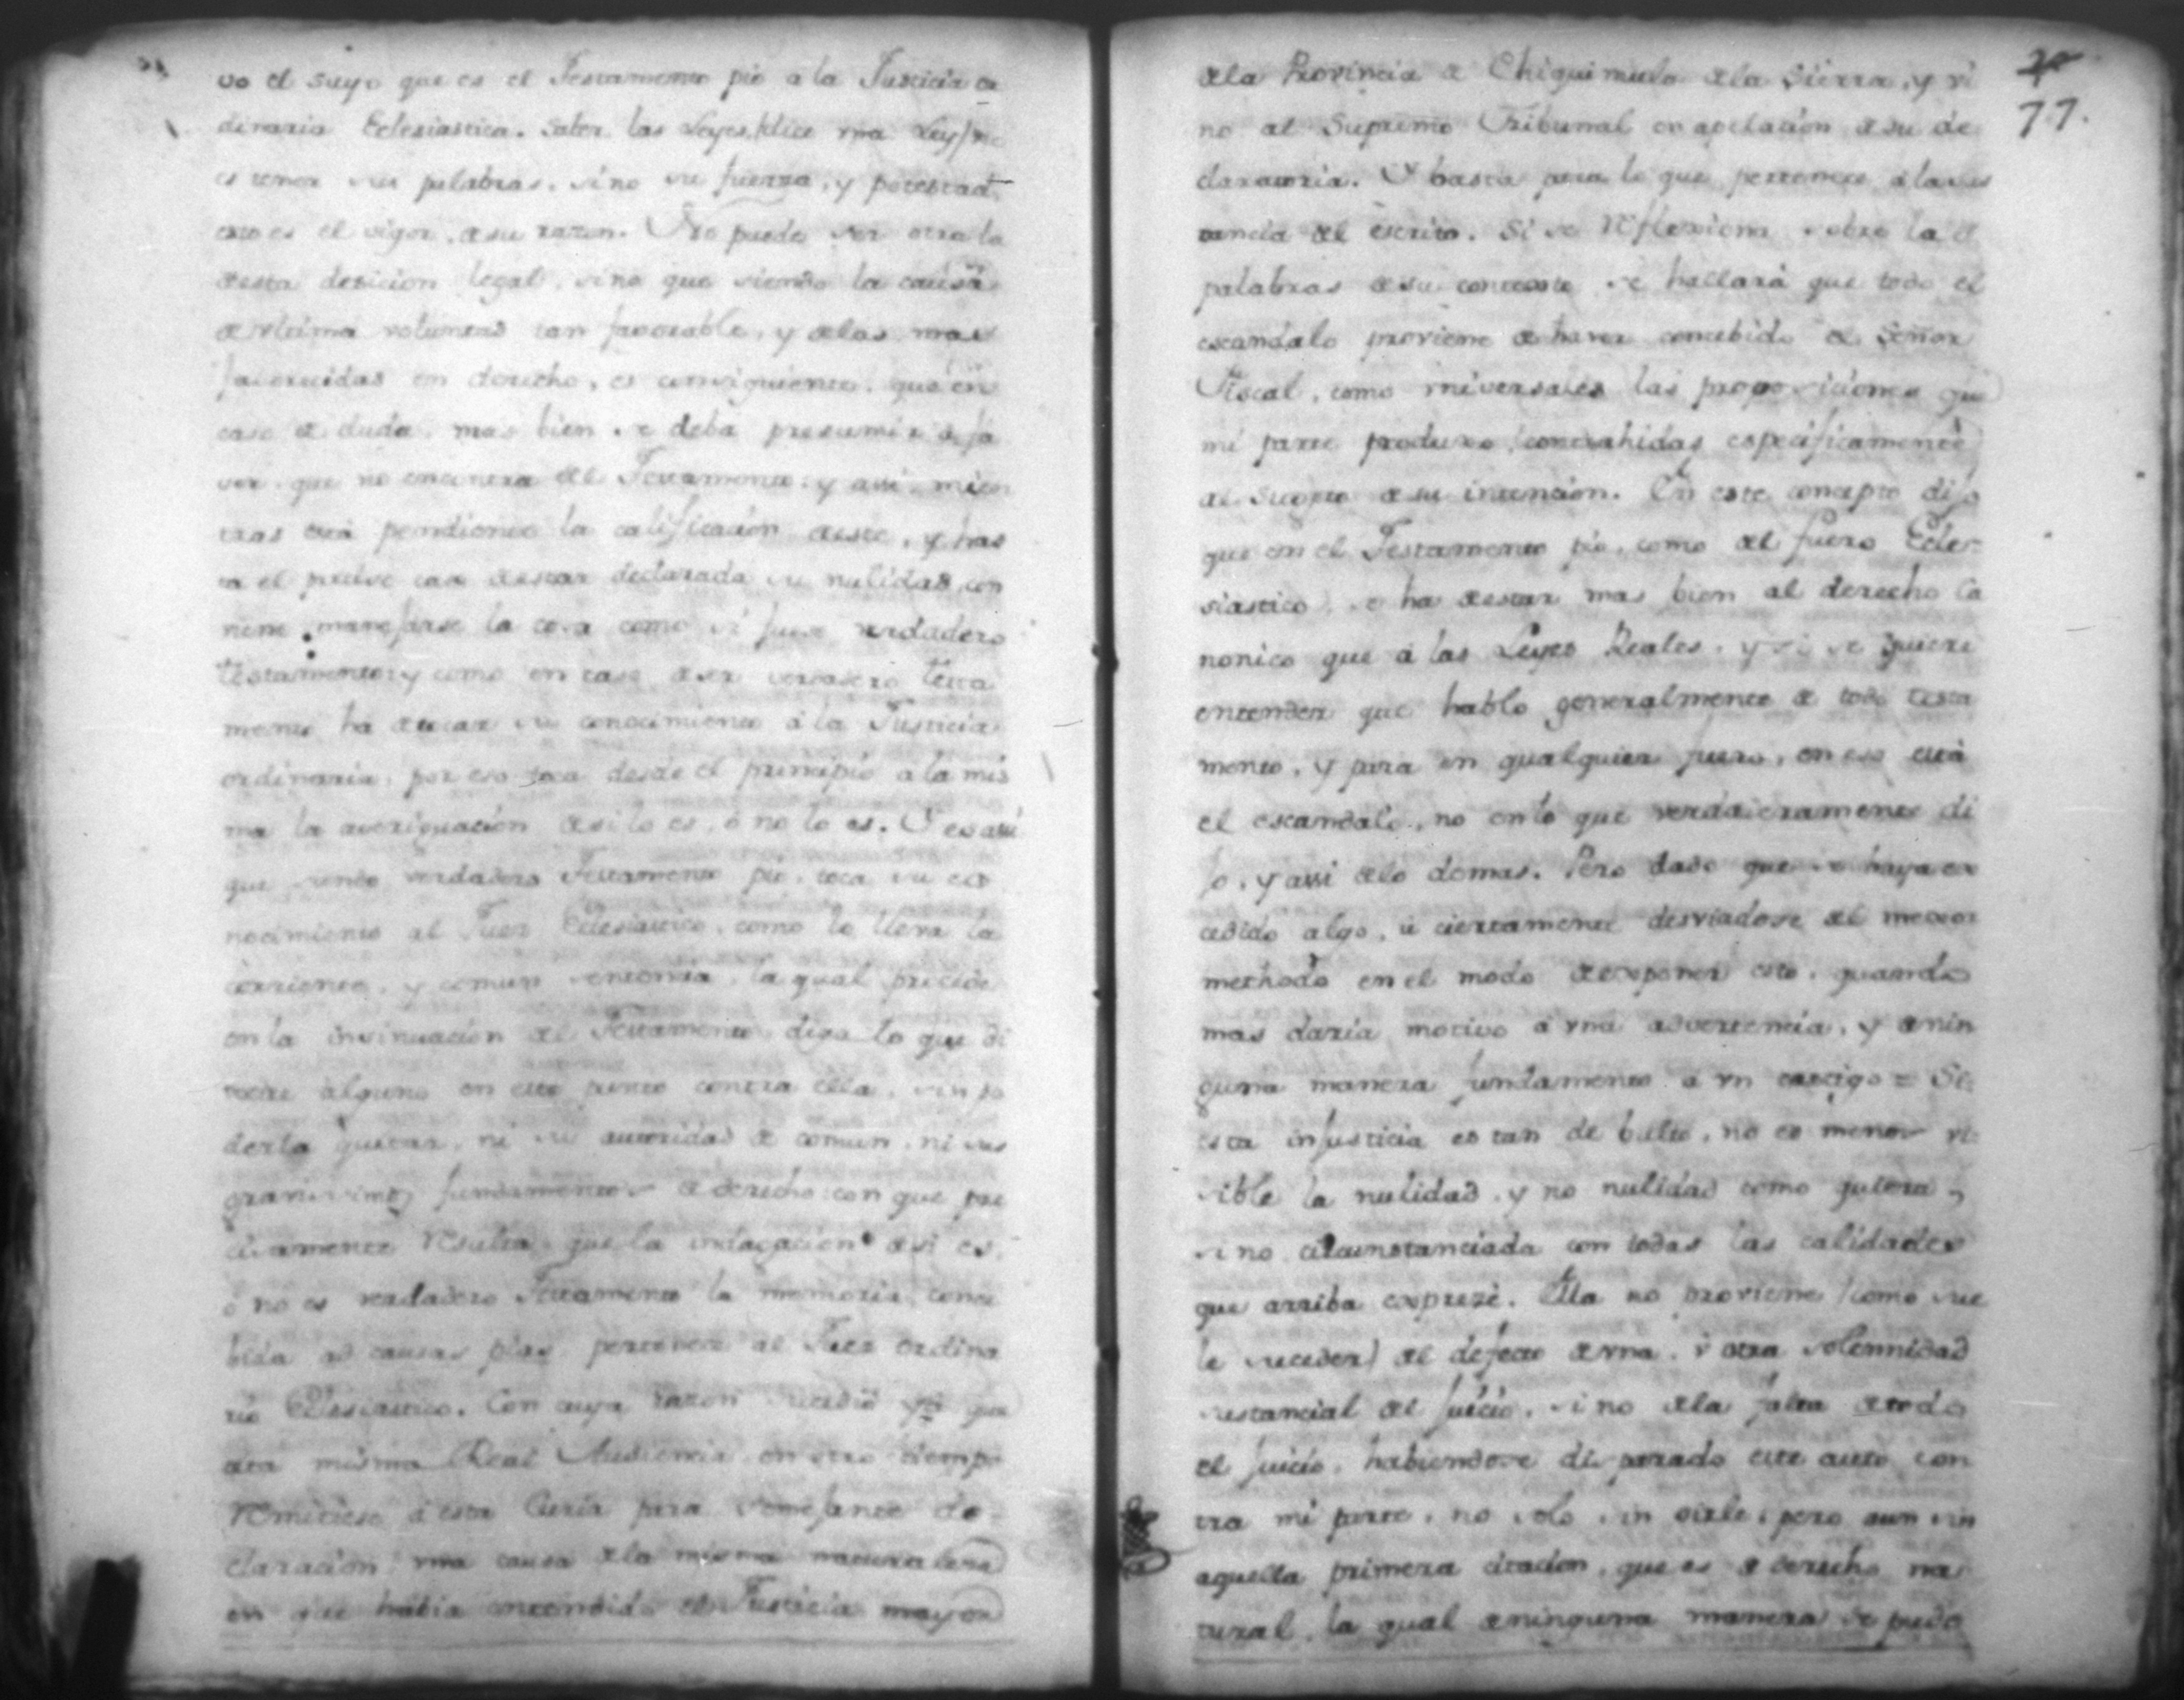 vo el suyo que es el Testamento pio a la Justicia or
dinaria Eclesiastica. Saber las Leyes (dice vna Ley) no
es tener sus palabras, sino su fuerza, y potestad
esto es el vigor de su razon. No puede ser otra la
de esta decicion legal, sino que siendo la causa
de vltima voluntad tan favorable, y de las mas
favorecidas en derecho, es consiguiente, que en
caso de duda, mas bien se deba presumir à fa
vor, que no encontra del Testamento: y assi mien
tras está pendiente la calificacion de este, y has
ta el preciso caso de estar declarada su nulidad, con
viene manejarse la cosa como si fuese verdadero
testamento: y como en caso de ser verdadero testa
mento ha de tocar su conocimiento á la Justicia
ordinaria, por eso toca desde el principio a la mis
ma la averiguacion de si lo es, ó no lo es. Y es assi
que siendo verdadero Testamento pio, toca su co
nocimiento al Juez Eclesiastico, como lo lleva la
corriente, y comun sentencia, la qual precede
en la insinuacion del Testamento, diga lo que di
xere alguno en este punto contra ella, sin po
derla quitar, ni su autoridad de comun, ni sus
gravisimos fundamentos de derecho: con que pre
cisamente Resulta, que la indagacion de si es,
ó no es verdadero Testamento la memoria conce
bida ad causas pias, pertenece al Juez ordina
rio Eclesiastico. Con cuya razon sucedió ya que
esta misma Real Audiencia en otro tiempo
Remitiese á esta Curia para semejante de-
claracion, vna causa de la misma naturaleza
en que habia entendido el Justicia mayor
77.
de la Provincia de Chiquimula de la Sierra, y vi
no al Supremo Tribunal en apelacion de su de
claratoria. Y basta para lo que pertenece á la sus
tancia del escrito. Si se Reflexiona sobre las
palabras de su contexto se hallará que todo el
escandalo proviene de haver concebido el Señor
Fiscal, como vniversales las proposiciones que
mi parte produxo contrahidas especificamente
al Sugeto de su intencion. En este concepto dijo
que en el Testamento pio, como del fuero Ecle-
siastico, se ha de estar mas bien al derecho Ca
nonico que á las Leyes Reales, y si se quiere
entender que hablo generalmente de todo testa
mento, y para en qualquier fuero, en eso está
el escandalo, no en lo que verdaderamente di
jo, y assi de lo demas. Pero dado que se haya ex
cedido algo, ú ciertamente desviadose del mexor
methodo en el modo de exponer esto, quando
mas daria motivo á vna advertencia, y de nin
guna manera fundamento á vn castigo = Si
esta injusticia es tan de bulto, no es menos vi
sible la nulidad, y no nulidad como quiera,
sino circunstanciada con todas las calidades
que arriba expresè. Ella no proviene (como sue
le suceder) del defecto de vna, ù otra solemnidad
sustancial del juicio, sino de la falta de todo
el juicio, habiendose disparado este auto con
tra mi parte, no solo sin oirle, pero aun sin
aquella primera citacion, que es de derecho na
tural, la qual de ninguna manera se pudo